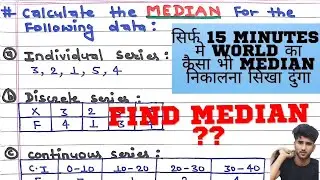 # Calculate the MEDIAN for the
following data:
सिर्फ 15 MINUTES
मे WORLD का
कैसा भी MEDIAN
निकालना सिखा दुंगा
ⓐ Individual series:
3, 2, 1, 5, 4
ⓑ Discrete series:
X 3 2
F 4 1 3
FIND MEDIAN
??
ⓒ continuous series:
C.I 0-10 10-20 20-30 30-40